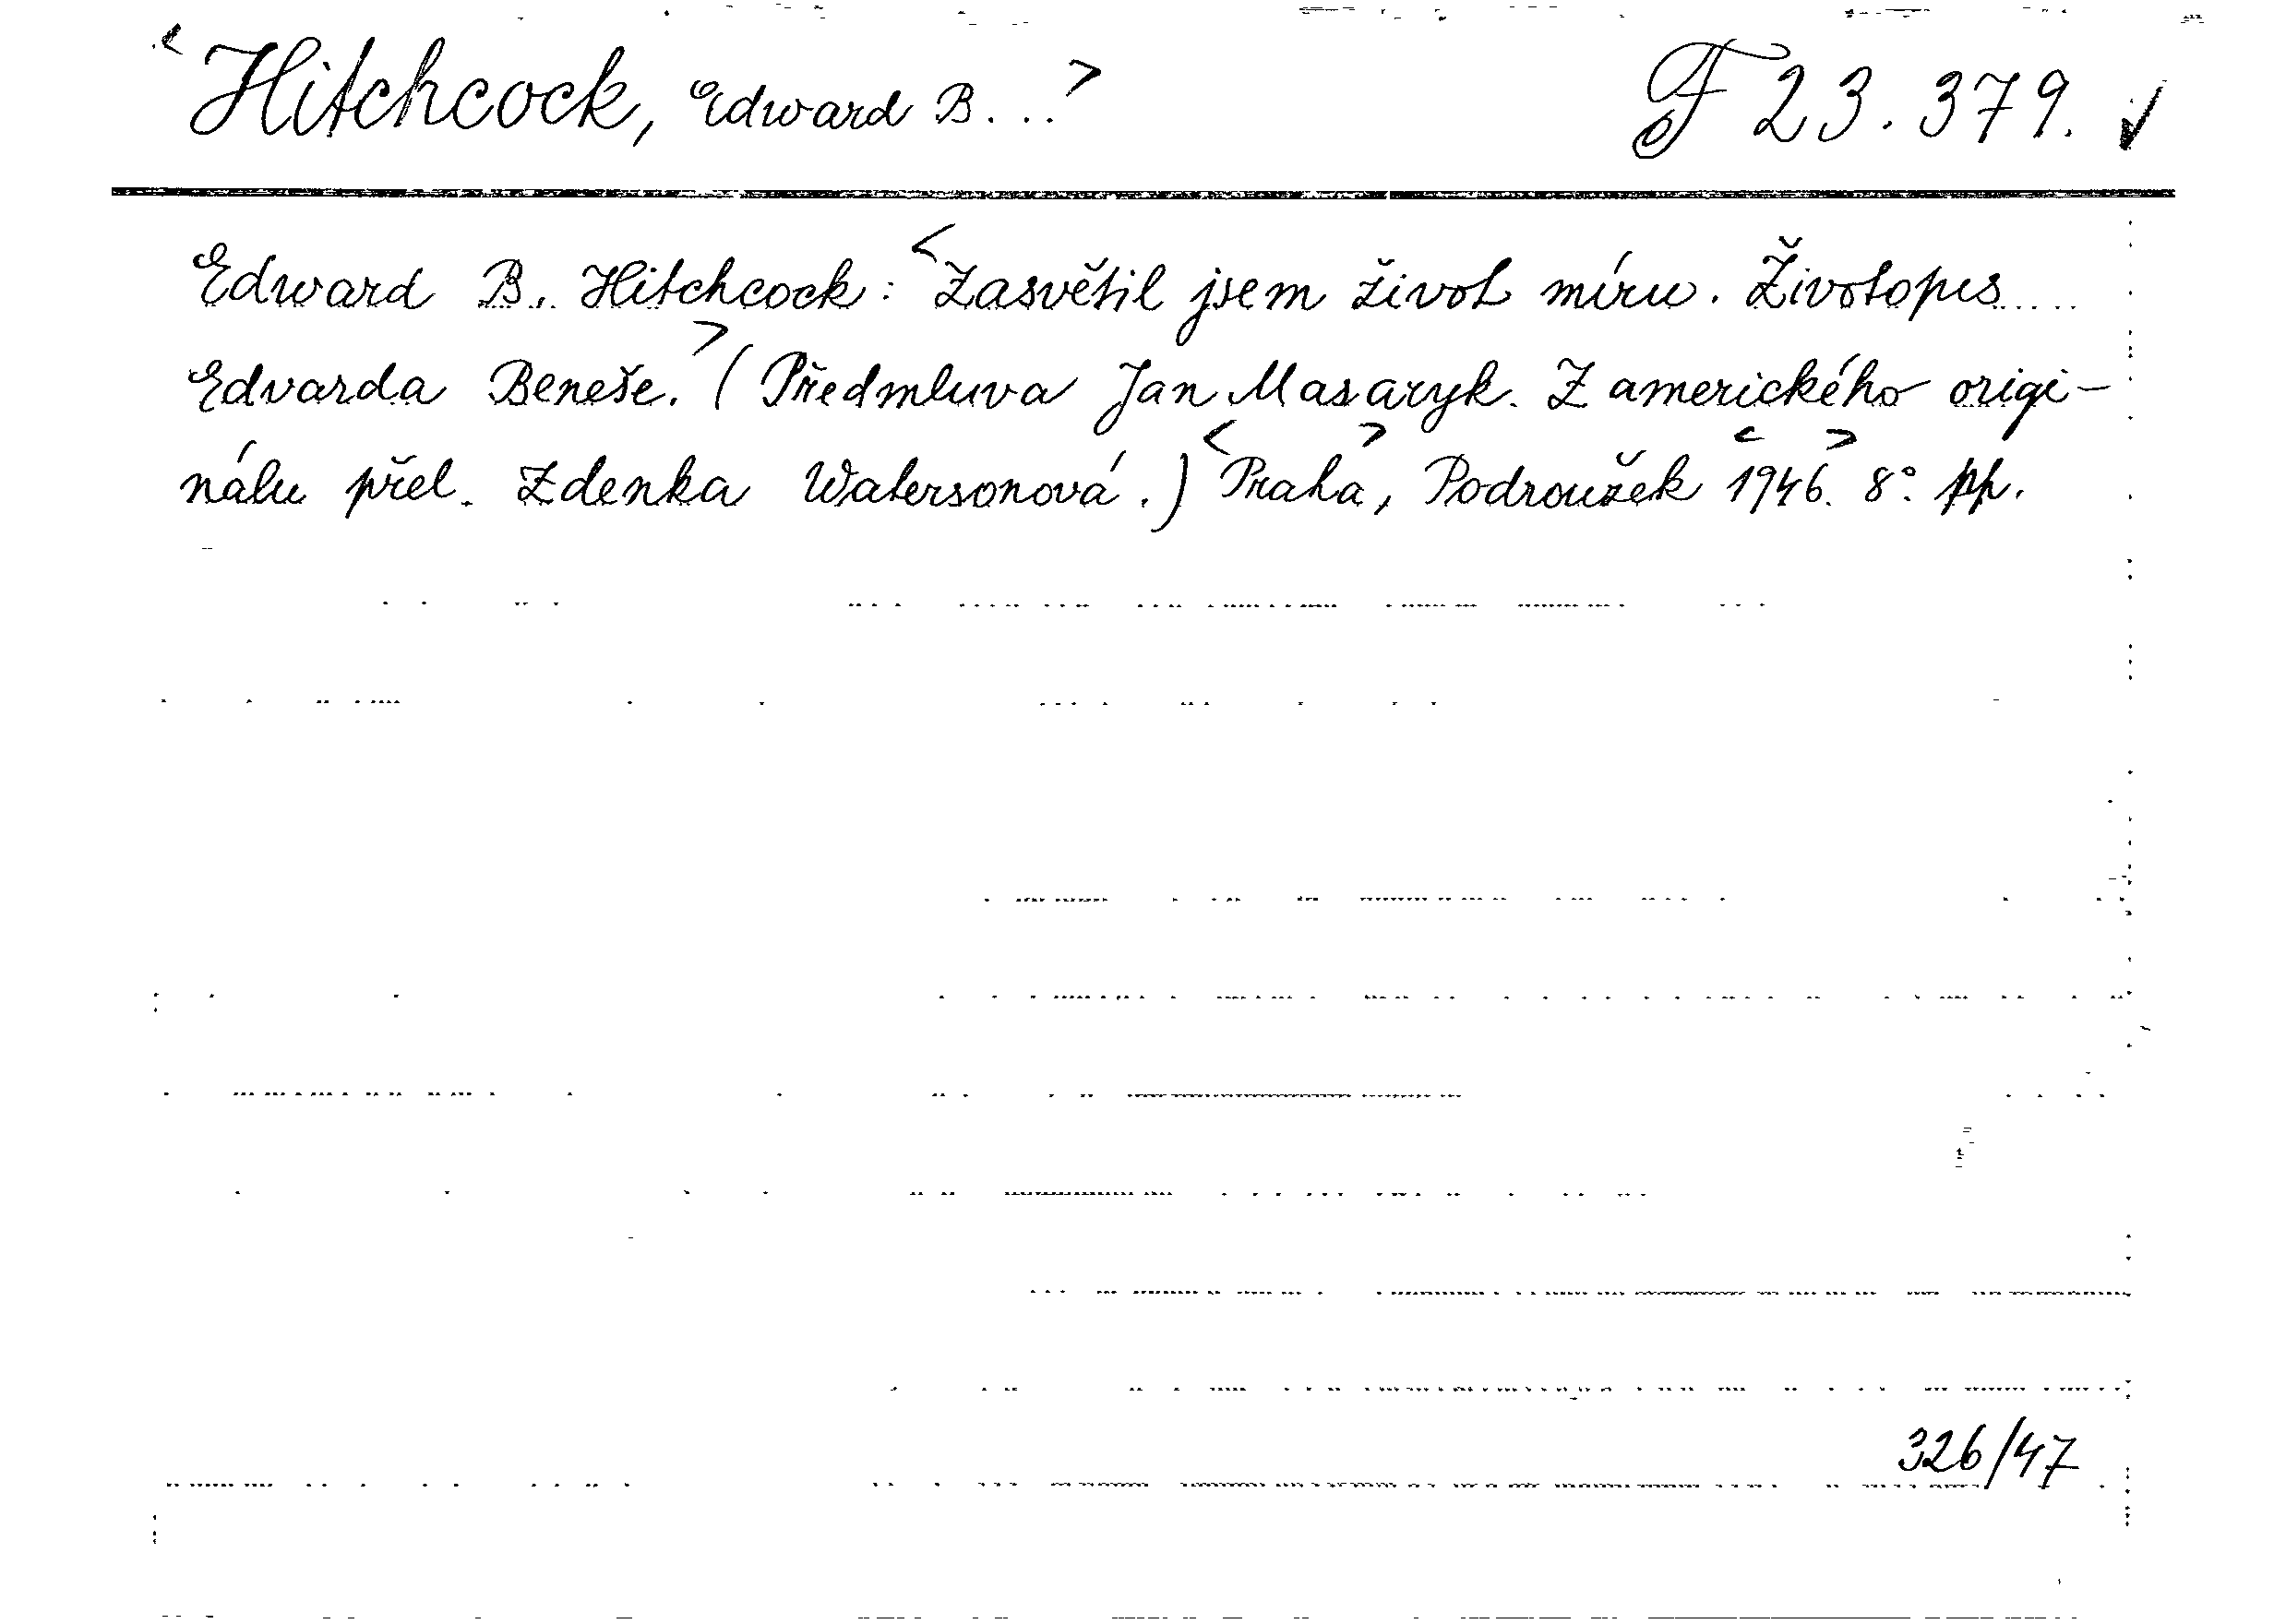 <Hitchcock, Edward B...> F 23.379. ✓
Edward B.. Hitchcock: <Zasvětil jsem život míru. Životopis.....
Edvarda Beneše.> (Předmluva Jan Masaryk. Z amerického origi-
nálu přel. Zdenka Watersonová.) <Praha>, Podroužek <1946>. 8°. pp.
326/47